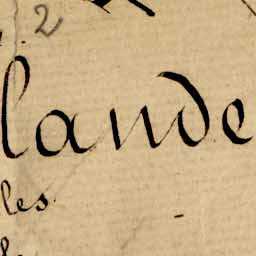 2
lande
les